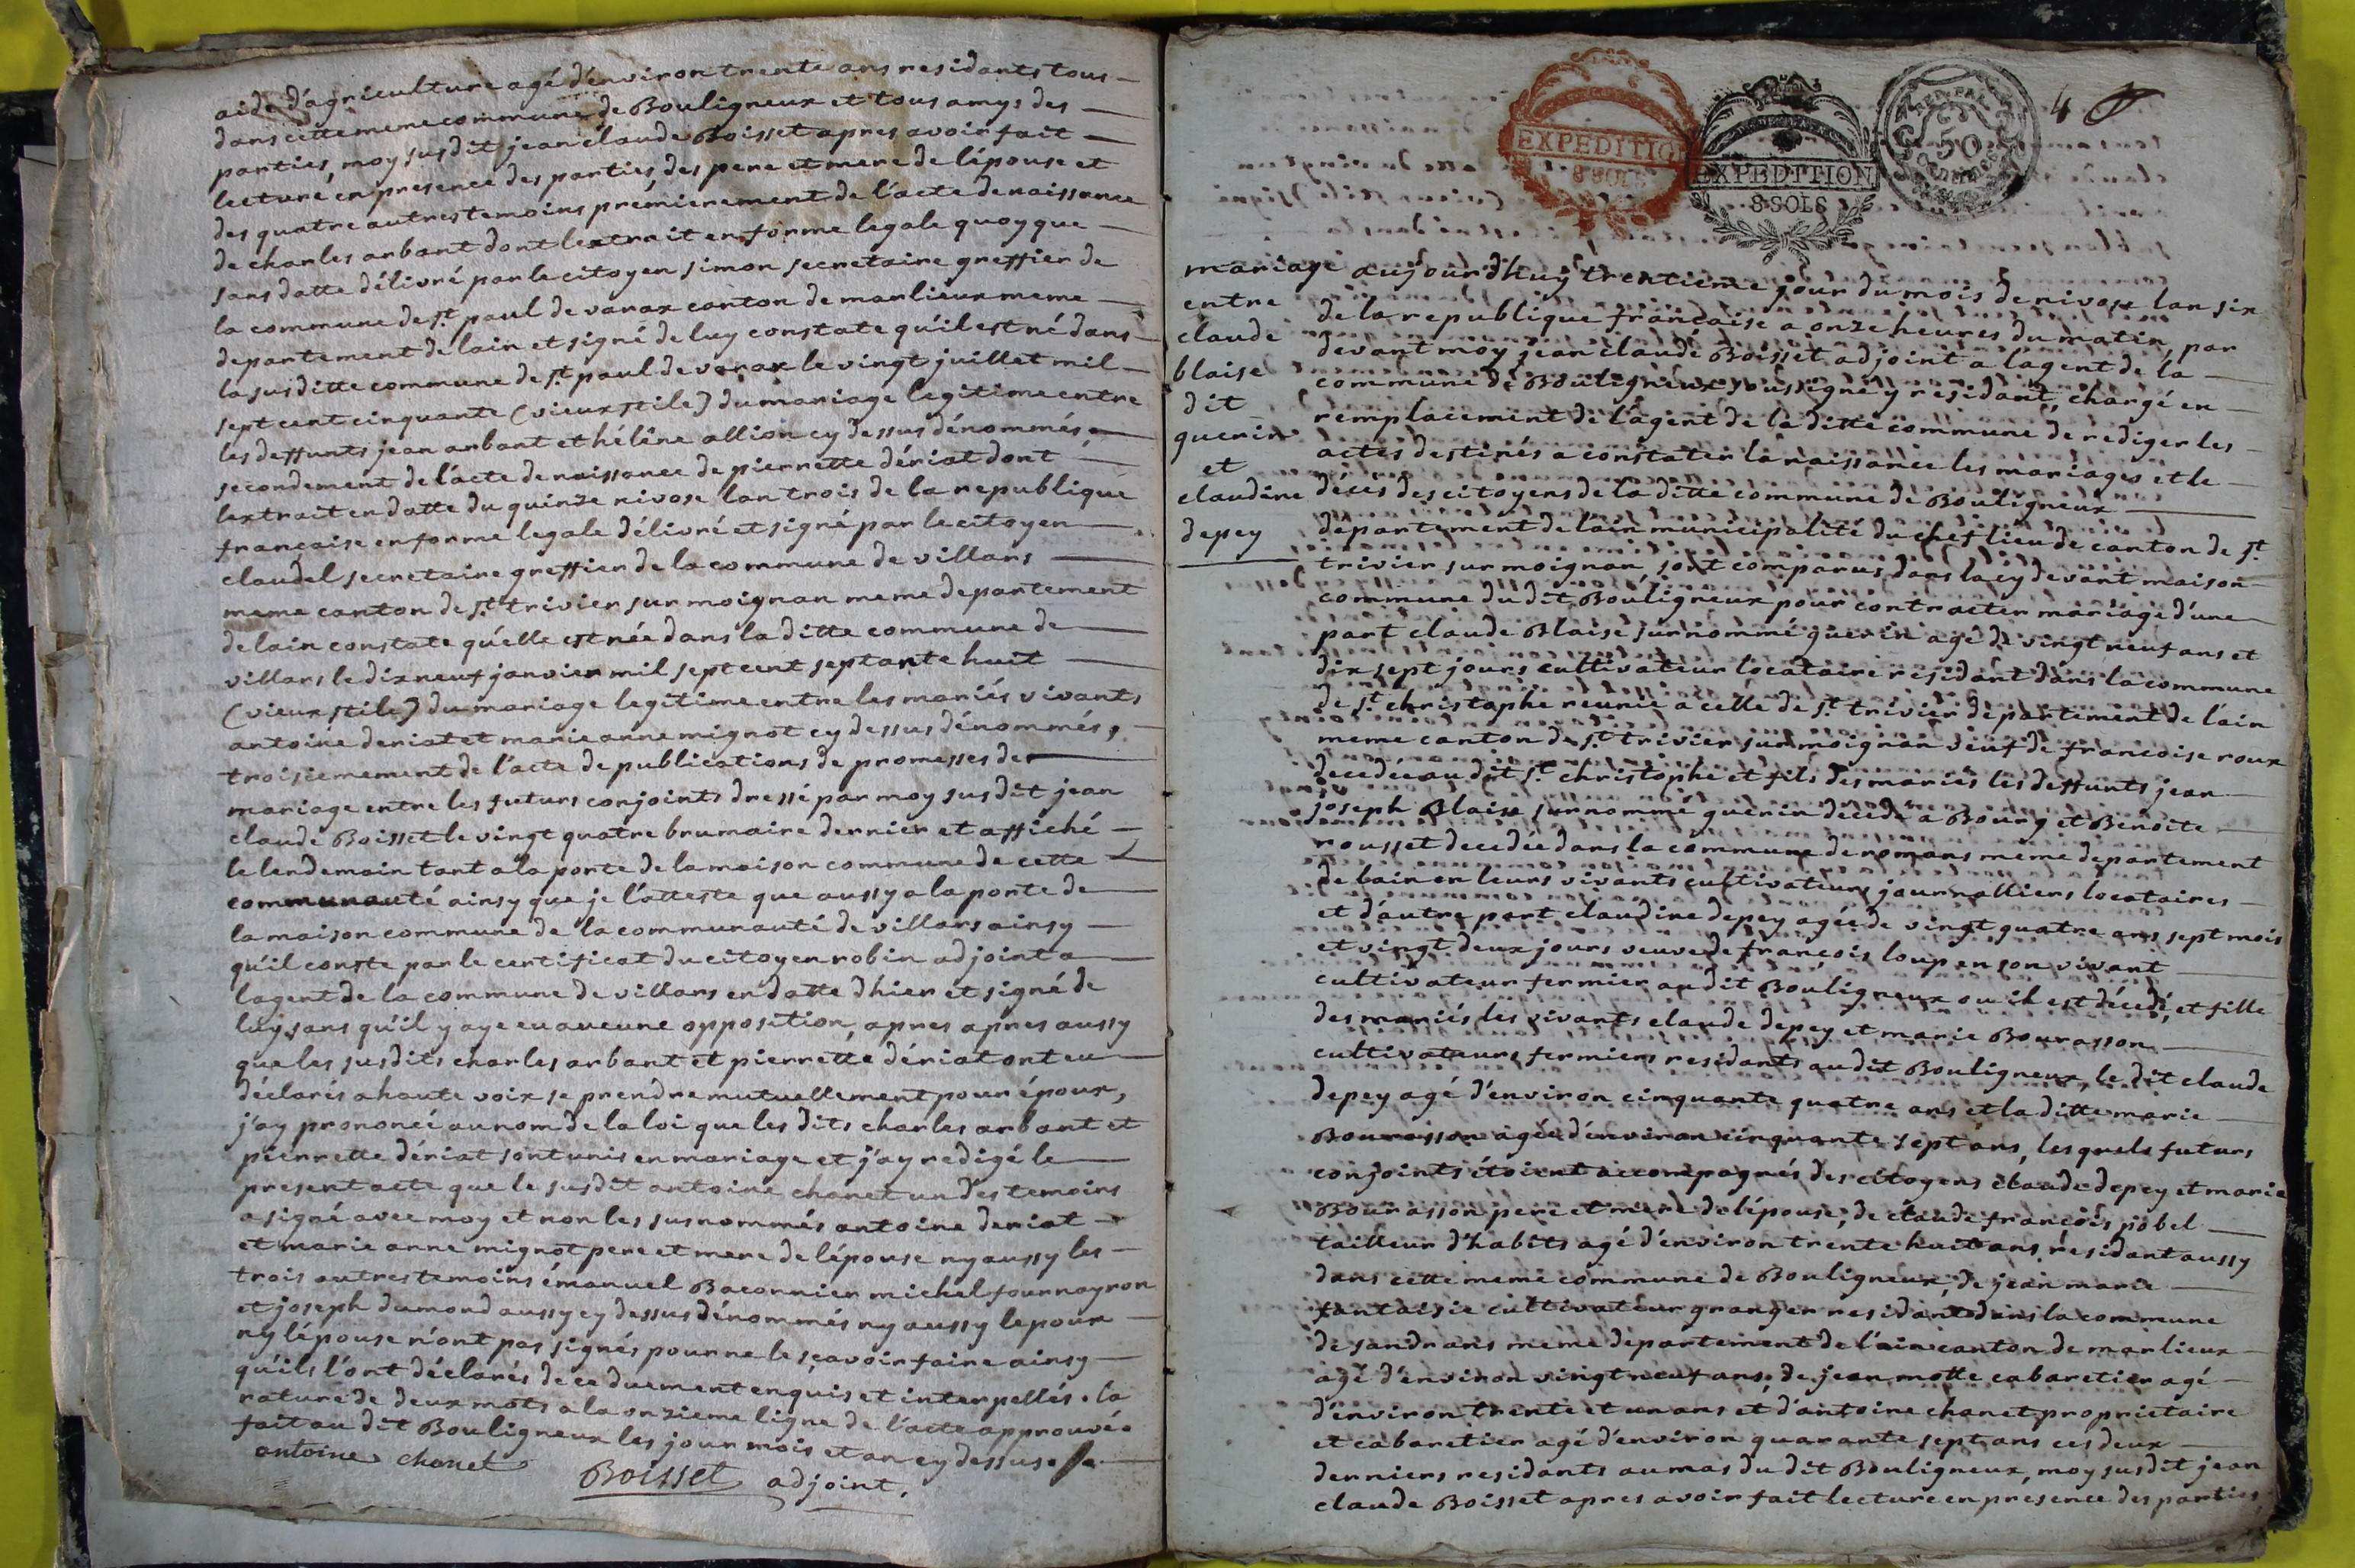 aide d'agriculture agé d'environ trente ans residants tous
dans cette meme commune de Bouligneux et tous amys des
parties, moy susdit jean claude Boisset apres avoir fait
lecture en presence des parties, des pere et mere de l'épouse et
des quatre autres temoins premierement de l'acte de naissance
de charles arbant dont lextrait en forme legale quoy que
sans datte délivré par le citoyen simon secretaire greffier de
la commune de st paul de varax canton de marlieux meme
departement de lain et signé de luy constate qu'il est né dans
la susditte commune de st paul de varax le vingt juillet mil
sept cent cinquante (vieux stile) du mariage legitime entre
les deffunts jean arbant et hélène allion cy dessus dénommés,
secondement de l'acte de naissance de pierrette dériat dont
lextrait en datte du quinze nivose lan trois de la republique
francaise en forme legale délivré et signé par le citoyen
claudel secretaire greffier de la commune de villars
meme canton de st trivier sur moignan meme departement
de lain constate qu'elle est née dans la ditte commune de
villars le dix neuf janvier mil sept cent septante huit
(vieux stile) du mariage legitime entre les mariés vivants
antoine deriat et marie anne mignot cy dessus dénommés,
troisiemement de l'acte de publications de promesses de
mariage entre les futurs conjoints dressé par moy susdit jean
claude Boisset le vingt quatre brumaire dernier et affiché
le lendemain tant a la porte de la maison commune de cette
communauté ainsy que je l'atteste que aussy a la porte de
la maison commune de la communauté de villars ainsy
qu'il conste par le certificat du citoyen robin adjoint a
lagent de la commune de villars en datte d'hier et signé de
luy sans qu'il y aye eu aucune opposition, apres apres aussy
que les susdits charles arbant et pierrette dériat ont eu
déclarés a haute voix se prendre mutuellement pour époux,
j'ay prononcé au nom de la loi que les dits charles arbant et
pierrette dériat sont unis en mariage et j'ay redigé le
present acte que le susdit antoine chanet un des temoins
a signé avec moy et non les susnommés antoine deriat
et marie anne mignot pere et mere de lépouse ny aussy les
trois autres temoins émanuel Baconnier michel fournayron
et joseph dumond aussy cy dessus dénommés ny aussy lepoux
ny lépouse n'ont pas signés pour ne le sçavoir faire ainsy
qu'ils l'ont déclarés de ce duement enquis et interpellés. la
rature de deux mots a la onzieme ligne de l'acte approuvée
fait au dit Bouligneux les jour mois et an cy dessus
antoine chanet Boisset adjoint.
EXPEDITION
8 SOLS
EXPEDITION
8 SOLS
50
4
mariage
entre
claude
blaise
dit
guerin
et
claudine
depey
aujourdhuy trentieme jour du mois de nivose lan six
de la republique francaise a onze heures du matin, par
devant moy jean claude Boisset adjoint a lagent de la
commune de Bouligneux soussigné y residant, chargé en
remplacement de l'agent de la ditte commune de rediger les
actes destinés a constater la naissance les mariages et le
décès des citoyens de la ditte commune de Bouligneux
departement de lain municipalité du chef lieu de canton de st
trivier sur moignan sont comparus dans la cy devant maison
commune du dit Bouligneux pour contracter mariage d'une
part claude Blaise surnommé guerin agé de vingt neuf ans et
dix sept jours cultivateur locataire residant dans la commune
de st christophe reunie a celle de st trivier departement de lain
meme canton de st trivier sur moignan veuf de francoise roux
decedée au dit st christophe et fils des mariés les deffunts jean
joseph Blaise surnommé guerin décédé a Bourg et Benoite
rousset decedée dans la commune de romans meme departement
de lain en leurs vivants cultivateurs journalliers locataires
et d'autre part claudine depey agée de vingt quatre ans sept mois
et vingt deux jours veuve de françois loup en son vivant
cultivateur fermier au dit Bouligneux ou il est décedé, et fille
des mariés les vivants claude depey et marie Bourasson
cultivateurs fermiers residants au dit Bouligneux, le dit claude
depey agé d'environ cinquante quatre ans et la ditte marie
Bourasson agée d'environ cinquante sept ans, les quels futurs
conjoints étoient accompagnés des citoyens claude depey et marie
Bourasson pere et mere de lépouse, de claude françois pobel
tailleur d'habits agé d'environ trente huit ans residant aussy
dans cette meme commune de Bouligneux, de jean marie
fantaisie cultivateur granger residant dans la commune
de sandrans meme departement de l'ain canton de marlieux
agé d'environ vingt neuf ans, de jean motte cabaretier agé
d'environ trente et un ans et d'antoine chanet proprietaire
et cabaretier agé d'environ quarante sept ans ces deux
derniers residants au mas du dit Bouligneux, moy susdit jean
claude Boisset apres avoir fait lecture en presence des parties